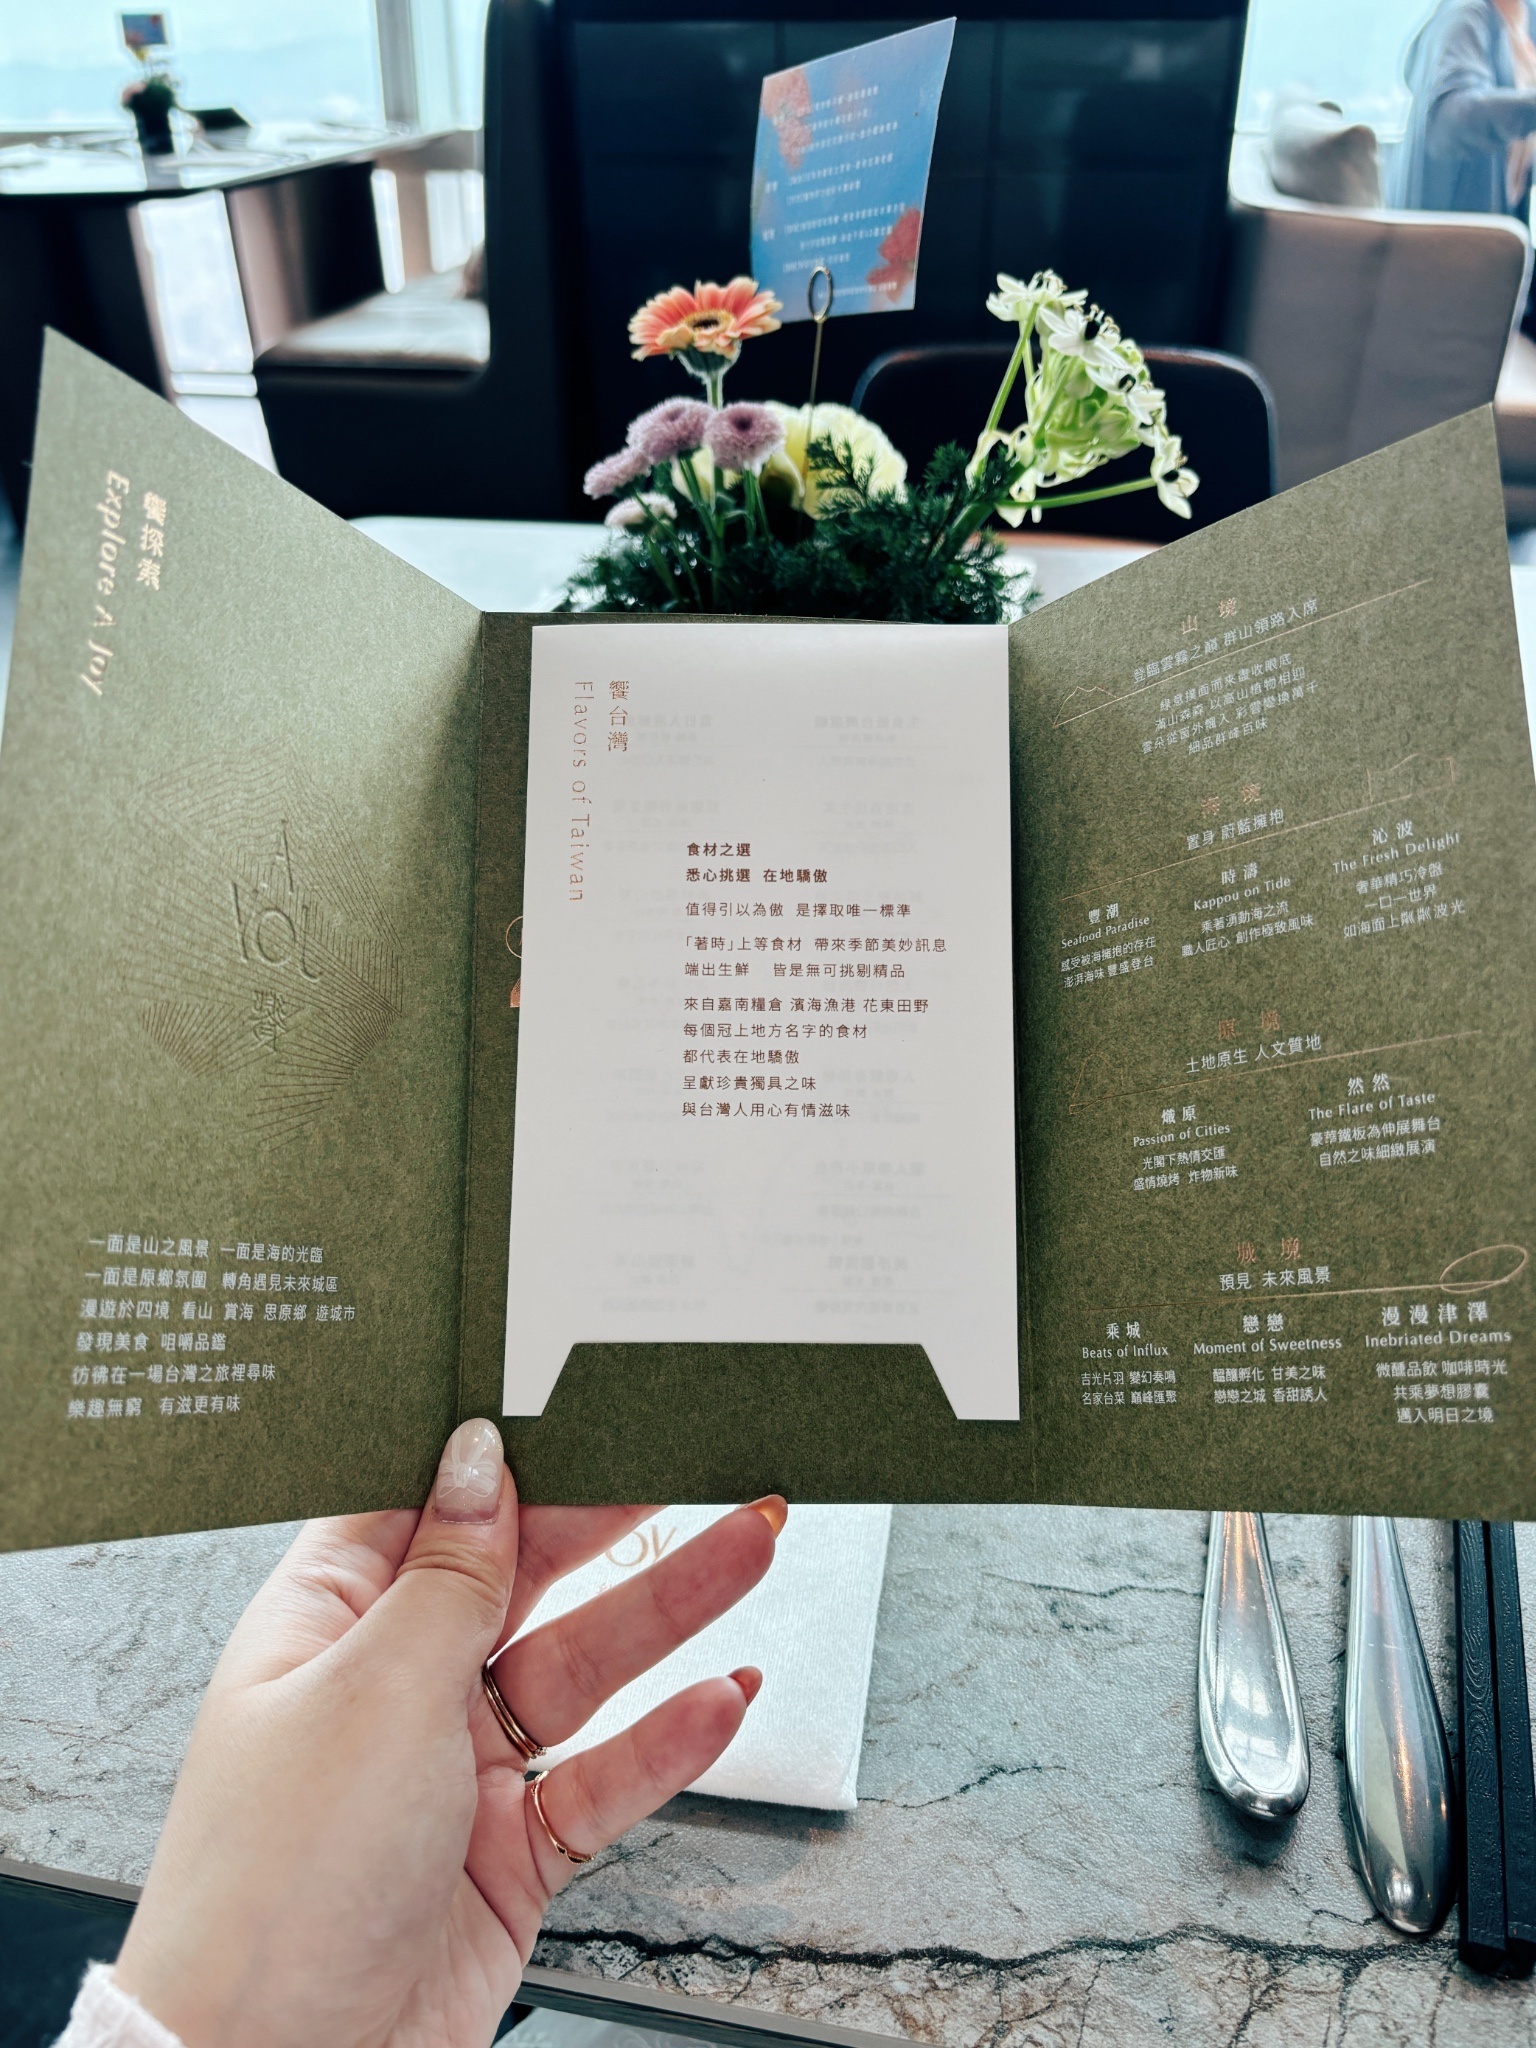 饗探索
Explore A Joy
A
JOY
饗
一面是山之風景 一面是海的光臨
一面是原鄉氛圍 轉角遇見未來城區
漫遊於四境 看山 賞海 思原鄉 遊城市
發現美食 咀嚼品鑑
彷彿在一場台灣之旅裡尋味
樂趣無窮 有滋更有味
饗台灣
Flavors of Taiwan
食材之選
悉心挑選 在地驕傲
值得引以為傲 是擇取唯一標準
「著時」上等食材 帶來季節美妙訊息
端出生鮮 皆是無可挑剔精品
來自嘉南糧倉 濱海漁港 花東田野
每個冠上地方名字的食材
都代表在地驕傲
呈獻珍貴獨具之味
與台灣人用心有情滋味
山境
登臨雲霧之巔 群山領路入席
綠意撲面而來盡收眼底
滿山森森 以高山植物相迎
雲朵從窗外飄入 彩霞變換萬千
細品群峰百味
海境
置身 蔚藍擁抱
豐潮
Seafood Paradise
感受被海擁抱的存在
澎湃海味 豐盛登台
時濤
Kappou on Tide
乘著湧動海之流
職人匠心 創作極致風味
沁波
The Fresh Delight
奢華精巧冷盤
一口一世界
如海面上粼粼波光
原境
土地原生 人文質地
熾原
Passion of Cities
光閣下熱情交匯
盛情燒烤 炸物新味
然然
The Flare of Taste
豪華鐵板為伸展舞台
自然之味細緻展演
城境
預見 未來風景
乘城
Beats of Influx
吉光片羽 變幻奏鳴
名家台菜 巔峰匯聚
戀戀
Moment of Sweetness
醞釀孵化 甘美之味
戀戀之城 香甜誘人
漫漫津澤
Inebriated Dreams
微醺品飲 咖啡時光
共乘夢想膠囊
邁入明日之境